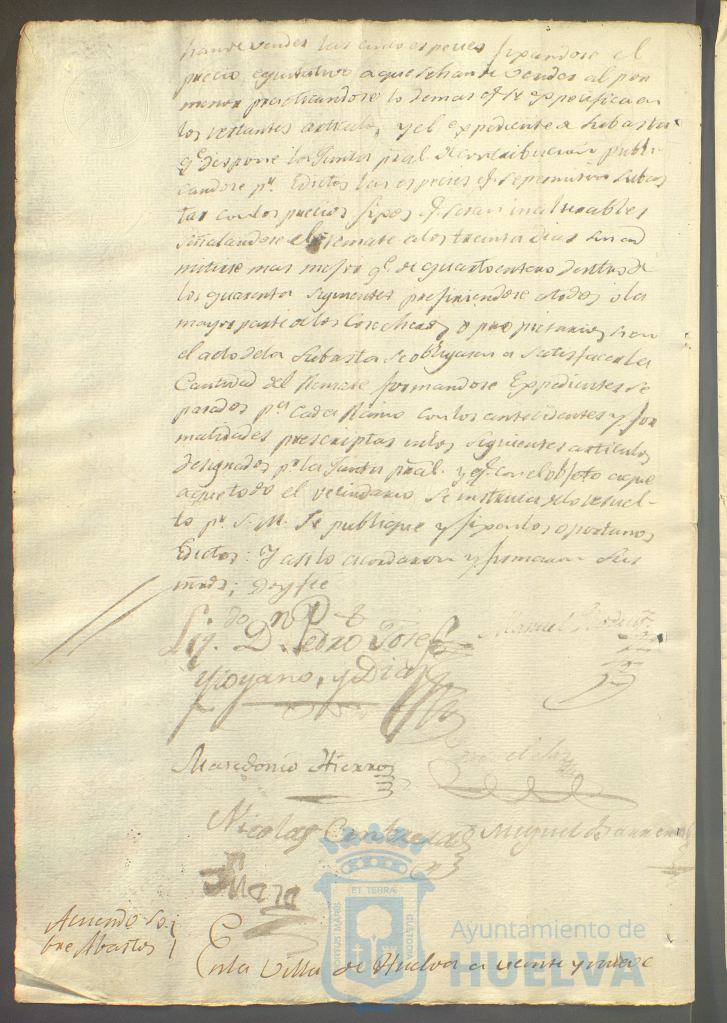 han de vender las cinco especies fixandose el
precio equitativo a que se han de vender al por
menor practicandose lo demas qe se expecifica en
los restantes articulos, y el expediente a subasta
qe dispone la Junta pral de contribucion publi-
candose pr Edictos las especies qe se permiten subas
tar con los precios fixos qe seran inalterables
señalandose el remate a los treinta dias sin ad
mitirse mas mejora qe de quarto entero dentro de
los quarenta siguientes prefiriendose a todos o la
mayor parte de los cosecheros o propietarios si en
el acto de la subasta se obligasen a satisfacer la
Cantidad del Remate formandose Expedientes se
parados pa cada Ramo con los antecedentes y for
malidades prescriptas en los siguientes articulos
designados pr la Junta pral. y qe con el objeto a que
a que todo el vecindario se instruia de lo resuel-
to pr S. M. se publique y fixen los oportunos
Edictos: Y asi lo acordaron y firmaron sus
mrds; doy fee
Lizdo Dn Pedro Josef
y Diaz
Manuel
Masedonio Hierro
Nicolas Contreras
Miguel
Acuerdo so-
bre Abastos
En la Villa de Huelva a veinte y nueve
PORTUS MARIS ET TERRÆ CUSTODIA
Ayuntamiento de
HUELVA